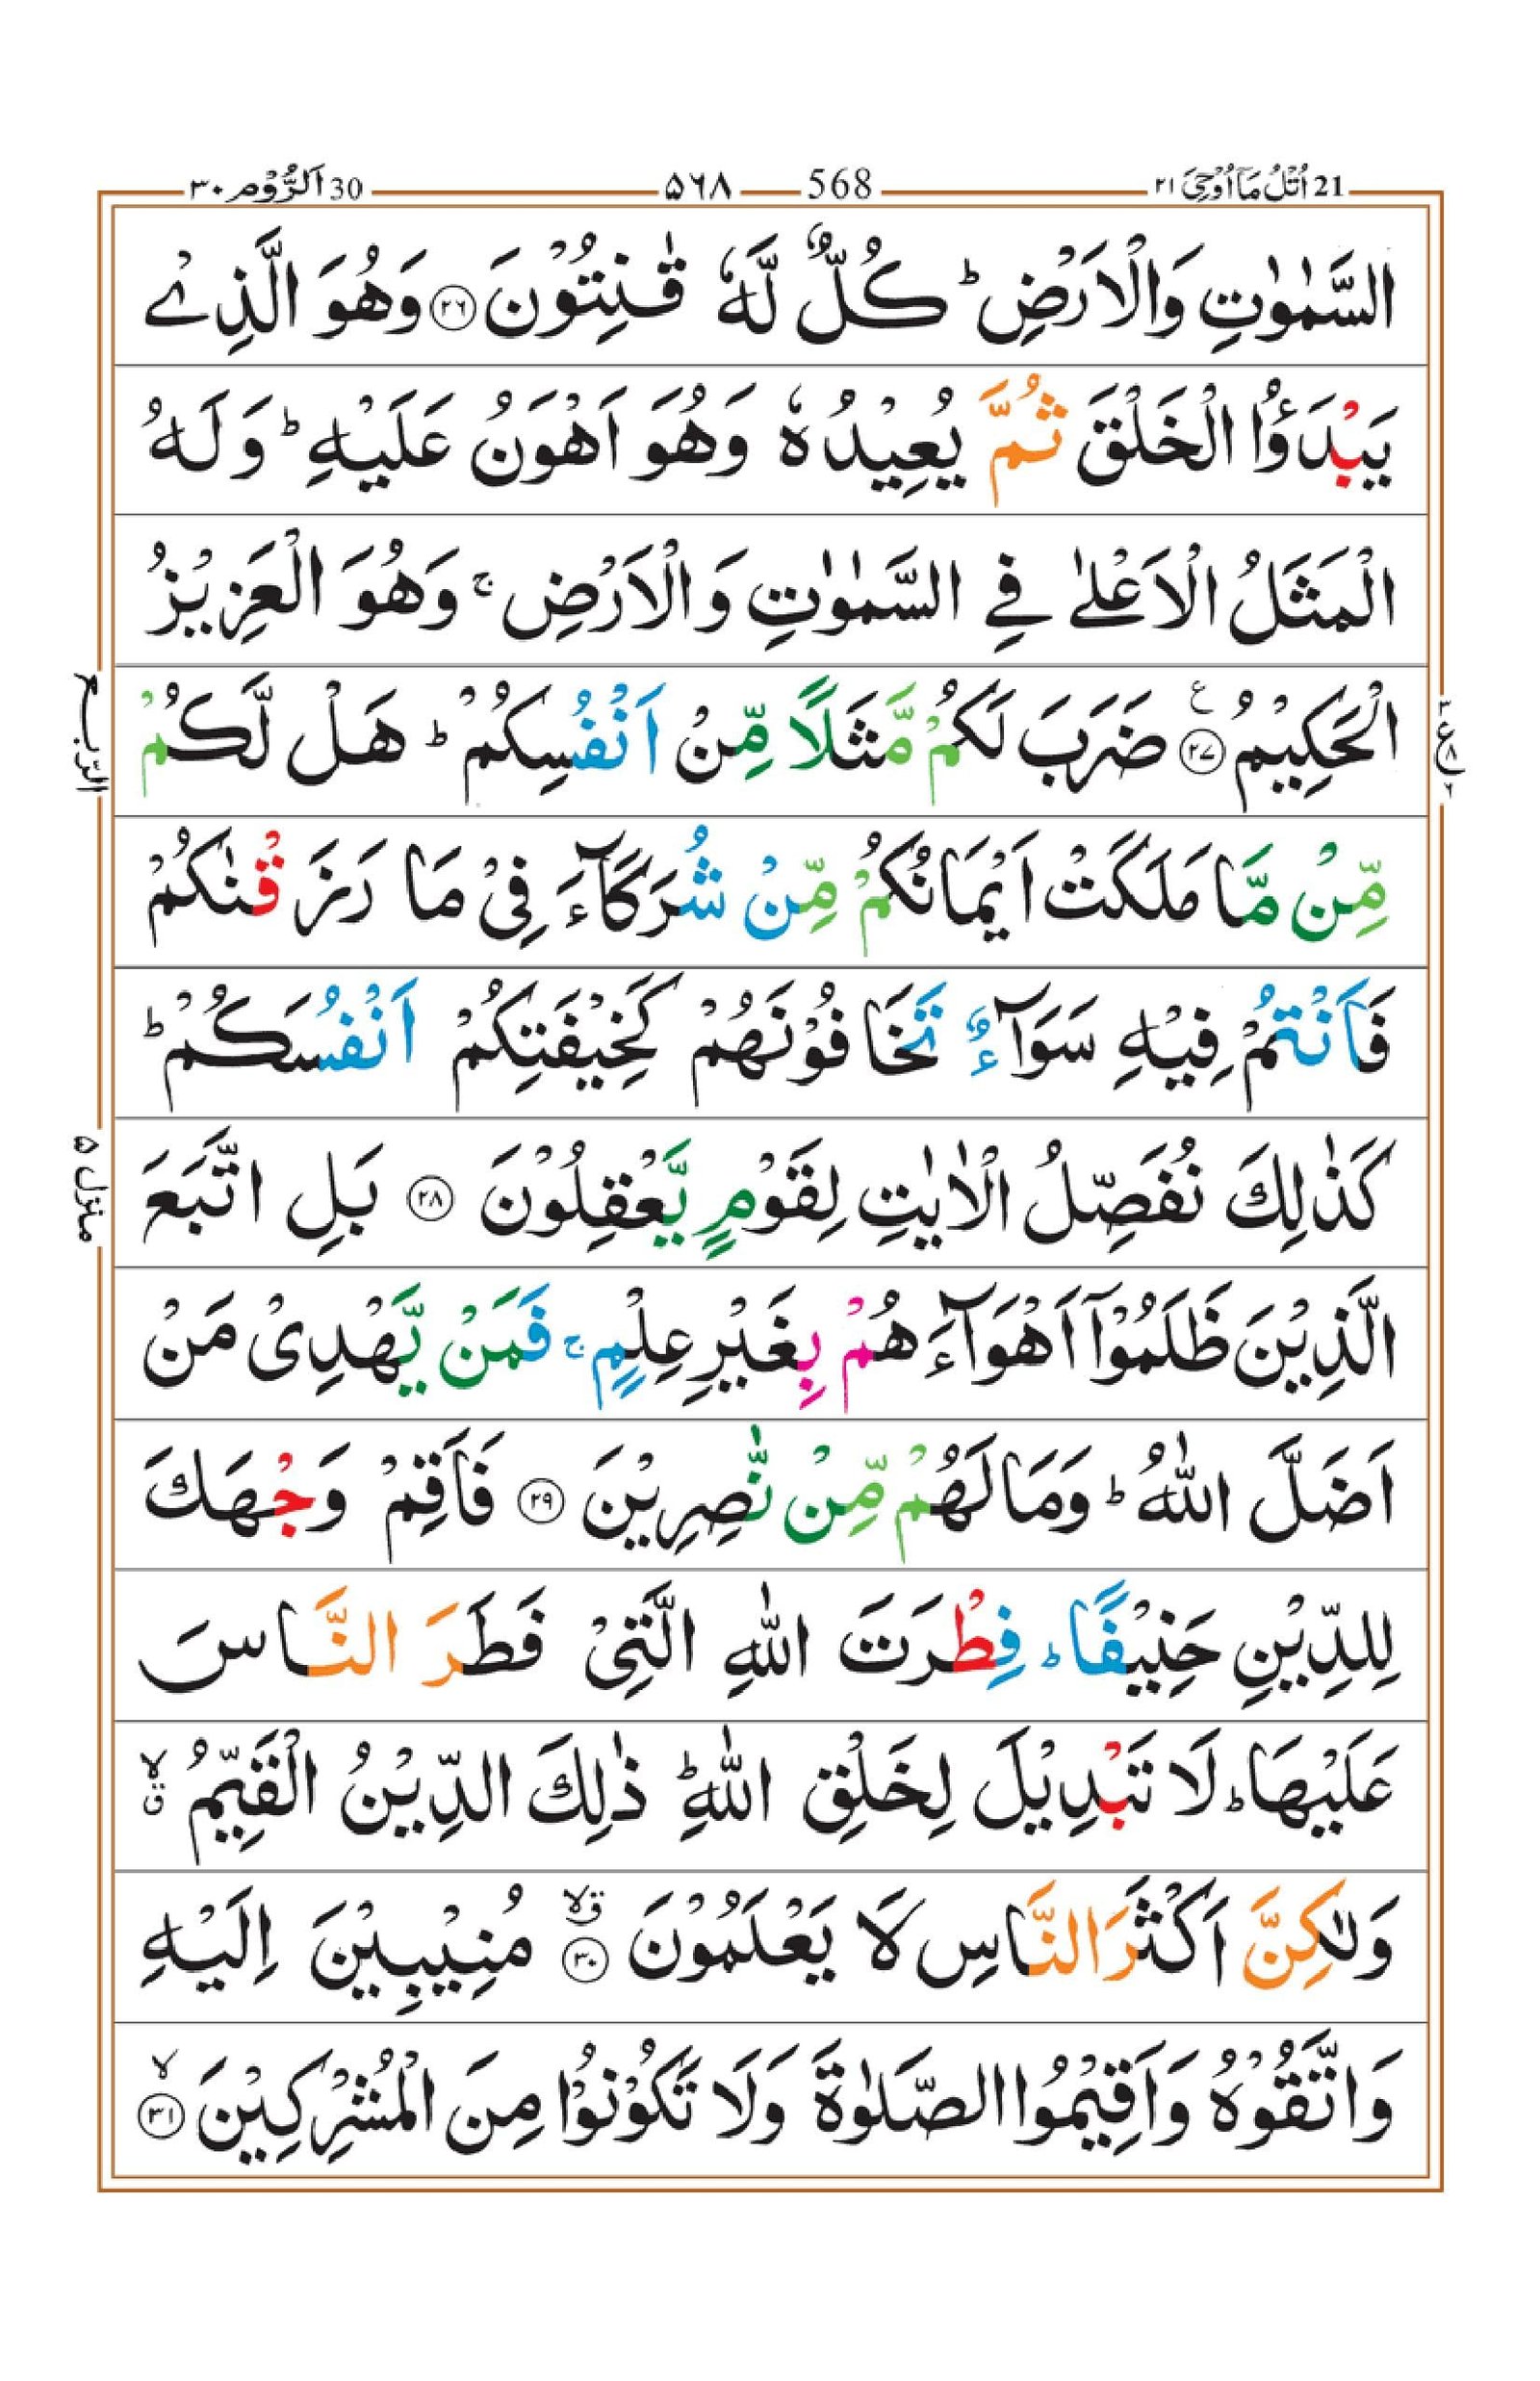 21 اُتْلُ مَاۤ اُوْحِیَ ۲۱ 568 ۵۶۸ 30 اَلرُّوْم ۳۰
السَّمٰوٰتِ وَالْاَرْضِ ؕ كُلٌّ لَّهٗ قٰنِتُوْنَ ﴿۲۶﴾ وَهُوَ الَّذِیْ
یَبْدَؤُا الْخَلْقَ ثُمَّ یُعِیْدُهٗ وَهُوَ اَهْوَنُ عَلَیْهِ ؕ وَلَهُ
الْمَثَلُ الْاَعْلٰی فِی السَّمٰوٰتِ وَالْاَرْضِ ۚ وَهُوَ الْعَزِیْزُ
الْحَكِیْمُ ﴿۲۷﴾ ع ضَرَبَ لَكُمْ مَّثَلًا مِّنْ اَنْفُسِكُمْ ؕ هَلْ لَّكُمْ
الرّبع
مِّنْ مَّا مَلَكَتْ اَیْمَانُكُمْ مِّنْ شُرَكَآءَ فِیْ مَا رَزَقْنٰكُمْ
فَاَنْتُمْ فِیْهِ سَوَآءٌ تَخَافُوْنَهُمْ كَخِیْفَتِكُمْ اَنْفُسَكُمْ ؕ
كَذٰلِكَ نُفَصِّلُ الْاٰیٰتِ لِقَوْمٍ یَّعْقِلُوْنَ ﴿۲۸﴾ بَلِ اتَّبَعَ
منزل ۵
الَّذِیْنَ ظَلَمُوْۤا اَهْوَآءَهُمْ بِغَیْرِ عِلْمٍ ۚ فَمَنْ یَّهْدِیْ مَنْ
اَضَلَّ اللّٰهُ ؕ وَمَا لَهُمْ مِّنْ نّٰصِرِیْنَ ﴿۲۹﴾ فَاَقِمْ وَجْهَكَ
لِلدِّیْنِ حَنِیْفًا ؕ فِطْرَتَ اللّٰهِ الَّتِیْ فَطَرَ النَّاسَ
عَلَیْهَا ؕ لَا تَبْدِیْلَ لِخَلْقِ اللّٰهِ ؕ ذٰلِكَ الدِّیْنُ الْقَیِّمُ ۙق
وَلٰكِنَّ اَكْثَرَ النَّاسِ لَا یَعْلَمُوْنَ ﴿۳۰﴾ قۙ مُنِیْبِیْنَ اِلَیْهِ
وَاتَّقُوْهُ وَاَقِیْمُوا الصَّلٰوةَ وَلَا تَكُوْنُوْا مِنَ الْمُشْرِكِیْنَ ﴿۳۱﴾ ۙ